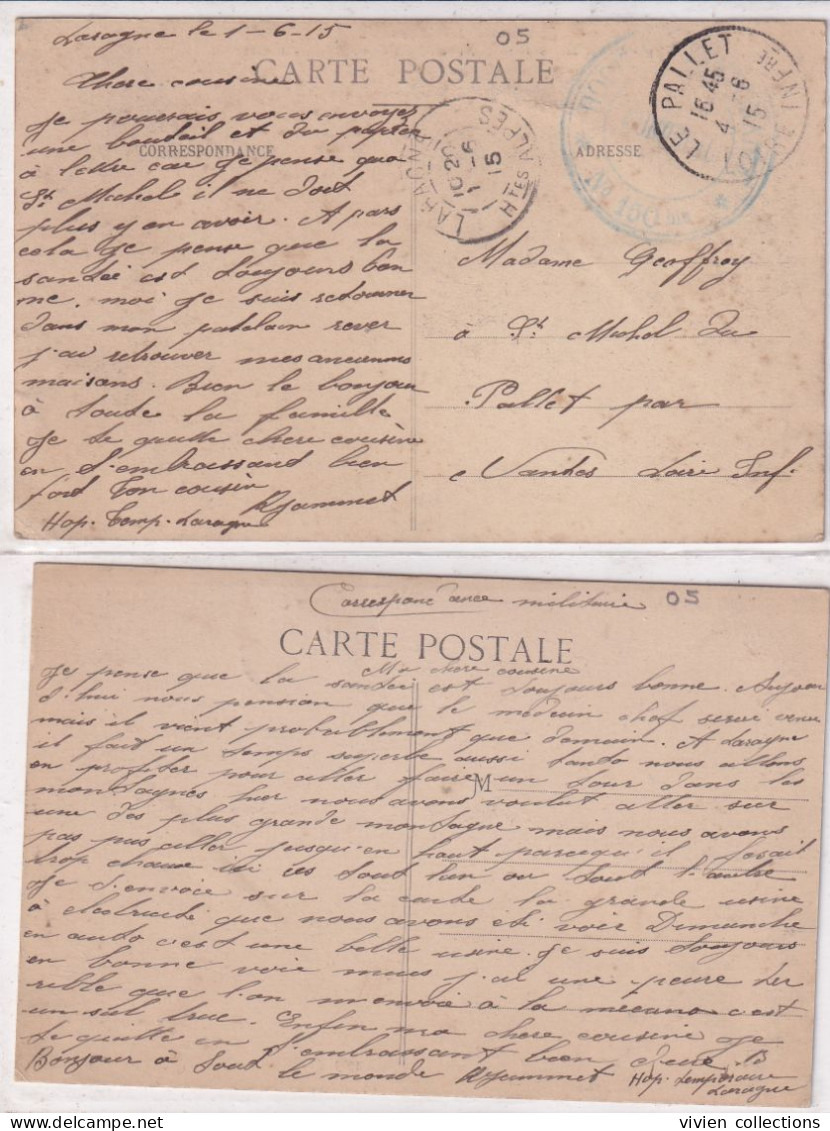 Laragne le 1-6-15
05
CARTE POSTALE
Chere cousine
CORRESPONDANCE
ADRESSE
LARAGNE
10 20
1 - 6
15
HTES ALPES
LE PALLET
16 45
4 - 6
15
LOIRE INFRE
Je pourrais vous envoyer
une bouteil et du papier
à lettre car je pense qua
St Michel il ne doit
plus y en avoir. A pars
cola je pense que la
sandée est toujours bon
ne, moi je suis retourner
dans mon patelain
j'ai retrouver mes anciennes
maisons. Bien le bonjour
à toute la famille
Je te quitte chere cousine
en t'embrassant bien
fort Ton cousin
Hop. Temp. Laragne
Madame Geoffroy
à St Michel du
Pallet par
Nantes Loire Inf.
Correspondance militaire
05
CARTE POSTALE
Ma chere cousine
Je pense que la sandée est toujours bonne. Aujour
d'hui nous pension que le médecin chef serai venu
mais il vient probablement que demain. A Laragne
il fait un temps superbe aussi tanto nous allons
en profiter pour aller faire un tour dans les
M
montagnes hier nous avons voulut aller sur
une des plus grande montagne mais nous avons
pas pus aller jusqu'en haut parcequ'il fesait
trop chaux ici ces tout lun ou tout l'autre
Je t'envoie sur la carte la grande usine
à electricité que nous avons été voir Dimanche
en auto c'est une belle usine. Je suis toujours
en bonne voie mais j'ai une peure ter
rible que l'on m'envoie à la mecano c'est
un sal truc. Enfin ma chere cousine je
te quitte en t'embrassant bien
Bonjour à tout le monde
Hop. temporaire
Laragne
vivien collections